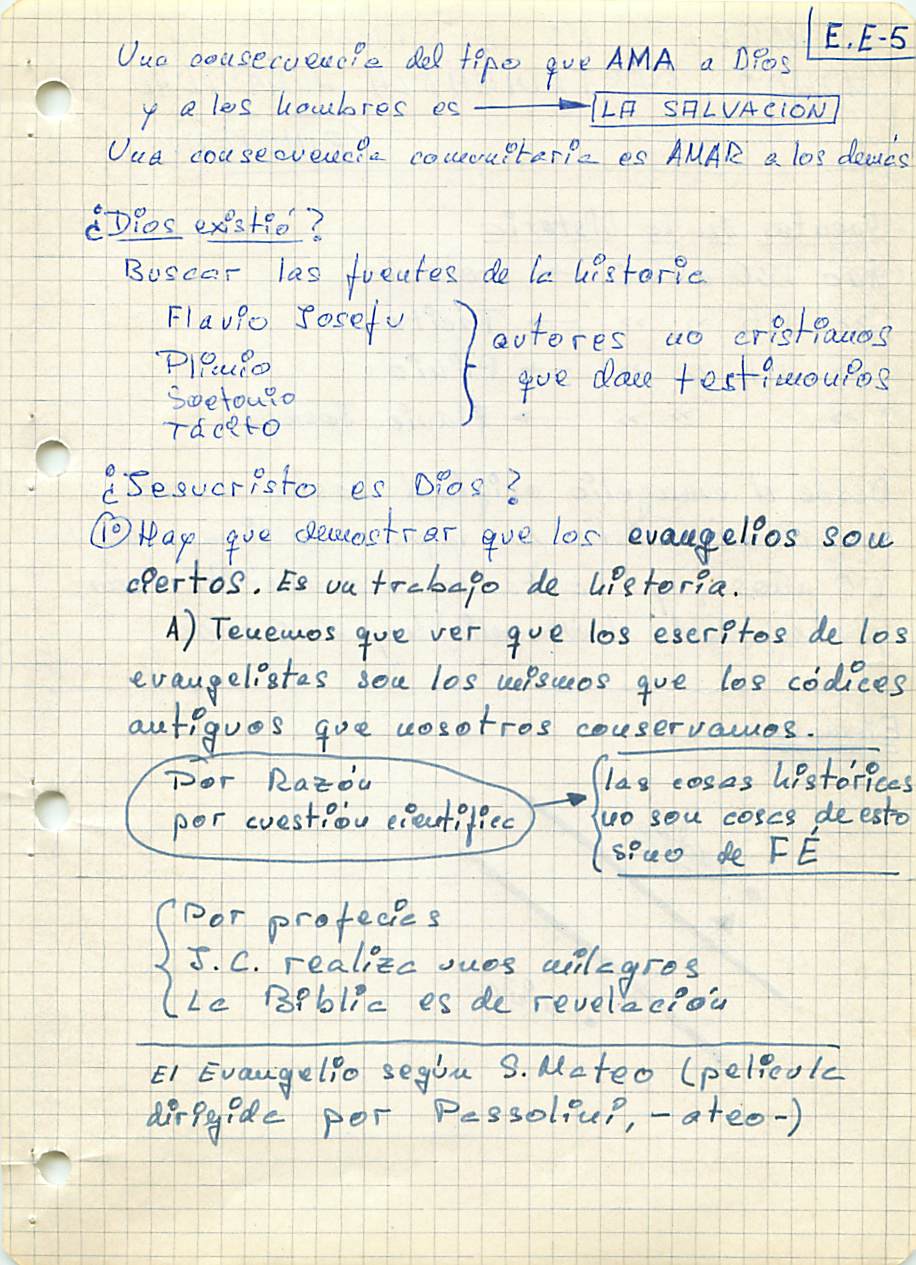 E.E-5
Una consecuencia del tipo que AMA a Dios
y a los hombres es LA SALVACIÓN
Una consecuencia comunitaria es AMAR a los demás
¿Dios existió?
Buscar las fuentes de la historia
Flavio Josefu
Plinio
Soetonio
Tácito
autores no cristianos
que dan testimonios
¿Jesucristo es Dios?
1º Hay que demostrar que los evangelios son
ciertos. Es un trabajo de historia.
A) Tenemos que ver que los escritos de los
evangelistas son los mismos que los códices
antiguos que nosotros conservamos.
Por Razón
por cuestión científica
las cosas históricas
no son cosas de esto
sino de FÉ
Por profecias
J.C. realiza unos milagros
La Biblia es de revelación
El Evangelio según S. Mateo (pelicula
dirigida por Passolini, -ateo-)